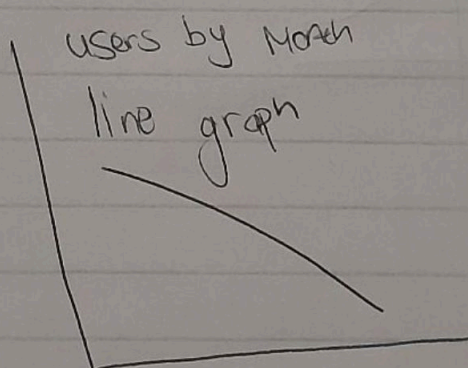 users by Month
line graph